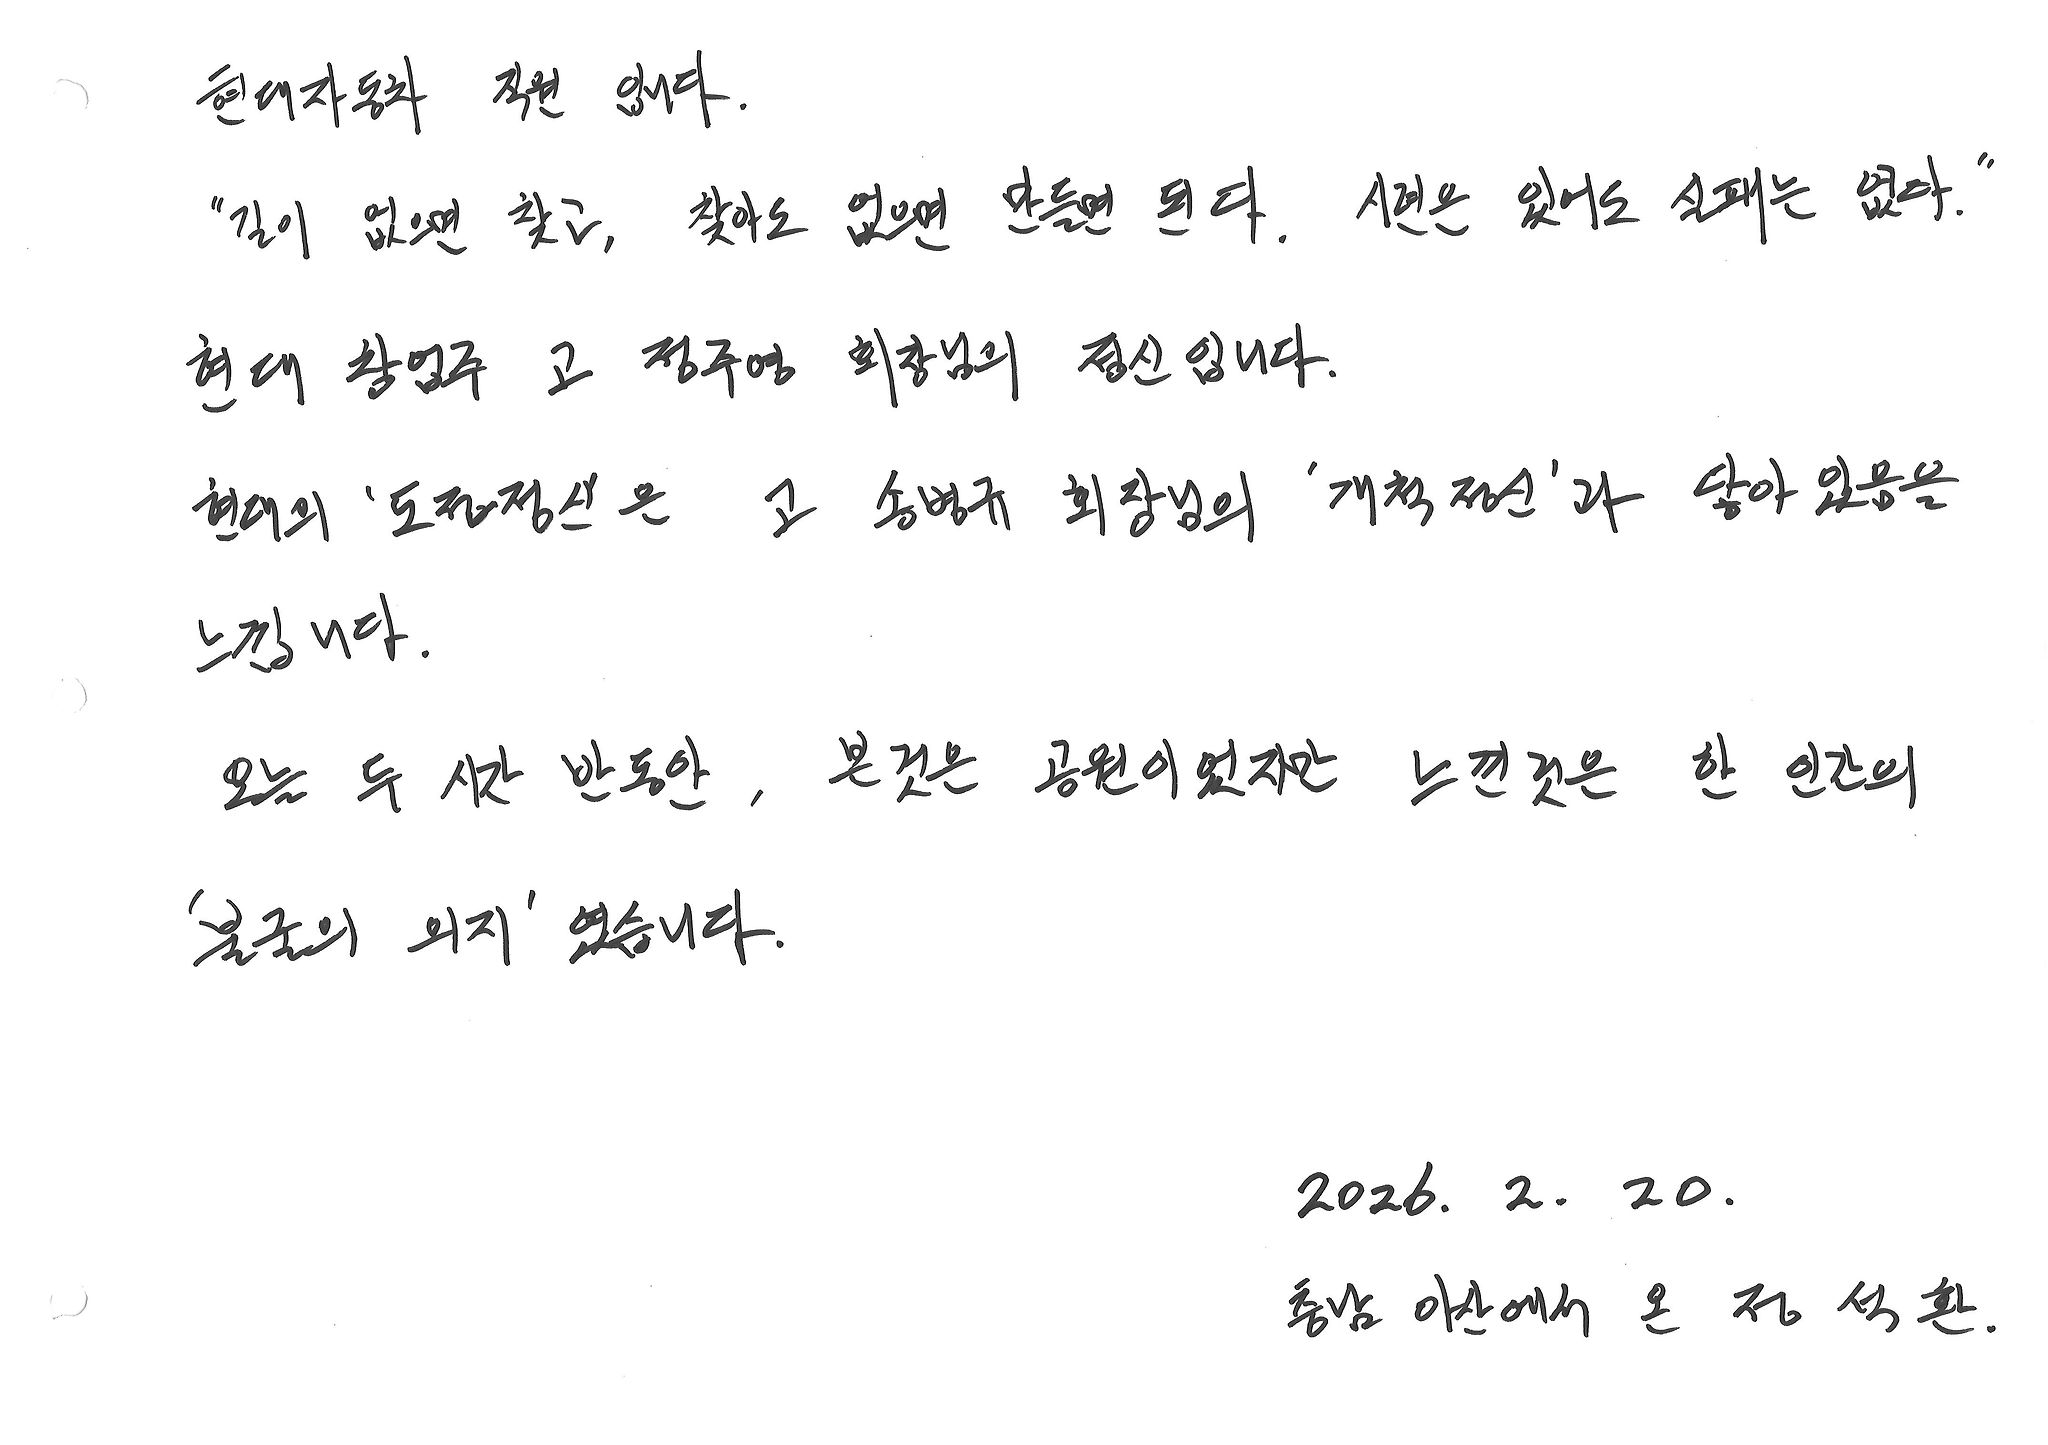 현대자동차 직원 입니다.
"길이 없으면 찾고, 찾아도 없으면 만들면 된다. 시련은 있어도 실패는 없다."
현대 창업주 고 정주영 회장님의 정신입니다.
현대의 '도전정신'은 고 송병규 회장님의 '개척정신'과 닮아있음을
느낍니다.
오늘 두 시간 반동안, 본것은 공원이었지만 느낀것은 한 인간의
'불굴의 의지'였습니다.
2026. 2. 20.
충남 아산에서 온 정석환.